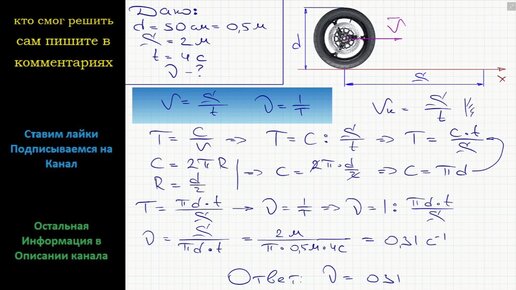 кто смог решить
сам пишите в
комментариях
Ставим лайки
Подписываемся на
Канал
Остальная
Информация в
Описании канала
Дано:
d = 50 см = 0,5 м
S = 2 м
t = 4 с
ν - ?
d
V
S
x
V = S/t ν = 1/T Vк = S/t
T = C/V => T = C : S/t => T = C·t/S
C = 2πR
R = d/2 => C = 2π·d/2 => C = πd
T = πd·t/S -> ν = 1/T => ν = 1 : πd·t/S
ν = S/πd·t = 2 м/π·0,5м·4с = 0,31 с⁻¹
Ответ: ν = 0,31